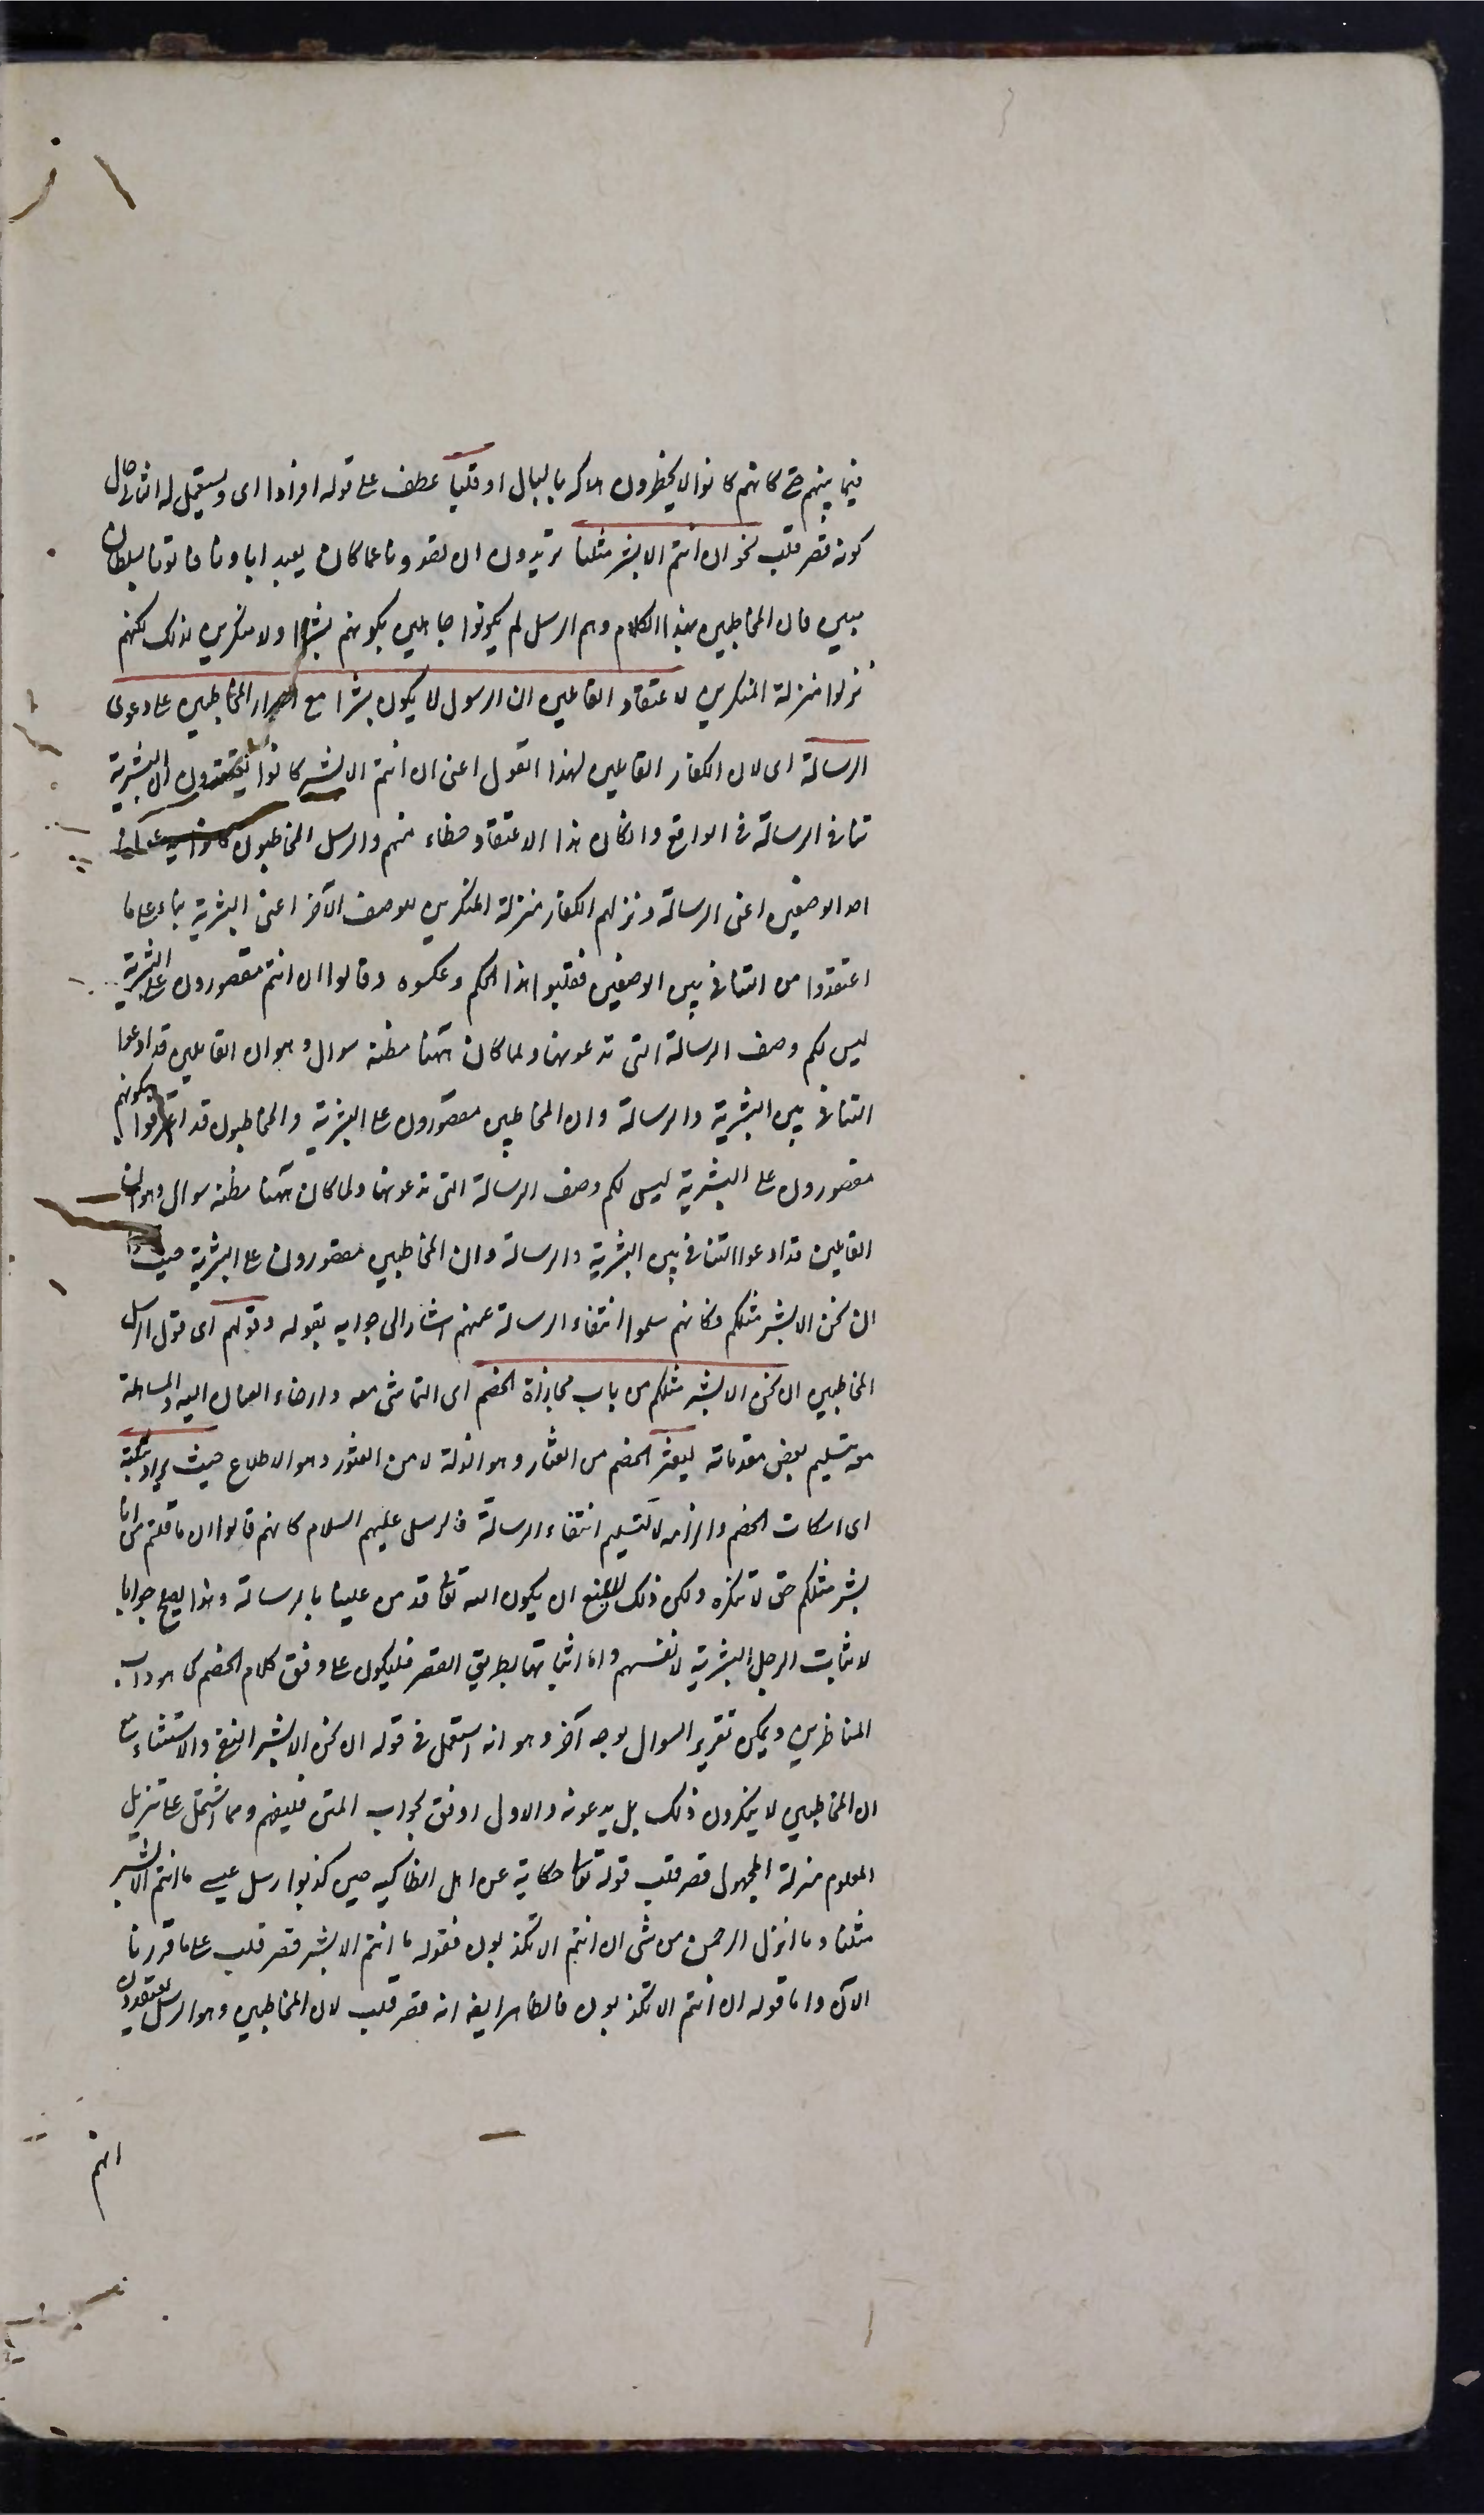 فيما بينهم حتى كانهم كانوا لا يخطرون هلاكه بالبال او قلبا عطف على قوله افرادا اى ويستعمل له الثانى حال
كونه قصر قلب نحو ان انتم الا بشر مثلنا تريدون ان تصدونا عما كان يعبد اباونا فاتونا بسلطان
مبين فان المخاطبين بهذا الكلام وهم الرسل لم يكونوا جاهلين بكونهم بشرا ولا منكرين لذلك لكنهم
نزلوا منزلة المنكرين لاعتقاد القائلين ان الرسول لا يكون بشرا مع اصرار المخاطبين على دعوى
الرسالة اى لان الكفار القائلين لهذا القول اعنى ان انتم الا بشر كانوا يعتقدون ان البشرية
تنافى الرسالة فى الواقع وان كان هذا الاعتقاد خطاء منهم والرسل المخاطبون
احد الوصفين اعنى الرسالة ونزلهم الكفار منزلة المنكرين للوصف الآخر اعنى البشرية بناء على ما
اعتقدوا من التنافى بين الوصفين فقلبوا هذا الحكم وعكسوه وقالوا ان انتم مقصورون على البشرية
ليس لكم وصف الرسالة التى تدعونها ولما كان ههنا مظنة سوال وهو ان القائلين قد ادعوا
التنافى بين البشرية والرسالة وان المخاطبين مقصورون على البشرية والمخاطبون قد اعترفوا بكونهم
مقصورون على البشرية ليس لكم وصف الرسالة التى تدعونها ولما كان ههنا مظنة سوال وهو ان
القائلين قد ادعوا التنافى بين البشرية والرسالة وان المخاطبين مقصورون على البشرية حيث قالوا
ان نحن الا بشر مثلكم فكانهم سلموا انتفاء الرسالة عنهم اشار الى جوابه بقوله وقولهم اى قول الرسل
المخاطبين ان نحن الا بشر مثلكم من باب مجاراة الخصم اى التماشى معه وارخاء العنان اليه والمساهلة
معه بتسليم بعض مقدماته ليعثر الخصم من العثار وهو الزلة لا من العثور وهو الاطلاع حيث يراد تبكيته
اى اسكات الخصم والزامه لا لتسليم انتفاء الرسالة فالرسل عليهم السلام كانهم قالوا ان ما قلتم من انا
بشر مثلكم حق لا ننكره ولكن ذلك لا يمنع ان يكون الله تعالى قد من علينا بالرسالة وهذا يصلح جوابا
لاثبات الرجل البشرية لانفسهم واما اثباتها بطريق القصر فليكون على وفق كلام الخصم كما هو داب
المناظرين ويمكن تقرير السوال بوجه آخر وهو انه استعمل فى قوله ان نحن الا بشر النفى والاستثناء مع
ان المخاطبين لا ينكرون ذلك بل يدعونه والاول اوفق بجواب المتن فليفهم ومما اشتمل على تنزيل
المعلوم منزلة المجهول قصر قلب قوله تعالى حكاية عن اهل انطاكيه حين كذبوا رسل عيسى ما انتم الا بشر
مثلنا وما انزل الرحمن من شى ان انتم الا تكذبون فقوله ما انتم الا بشر قصر قلب على ما قررنا
الآن واما قوله ان انتم الا تكذبون فالظاهر ايضا انه قصر قلب لان المخاطبين وهو الرسل يعتقدون
انهم